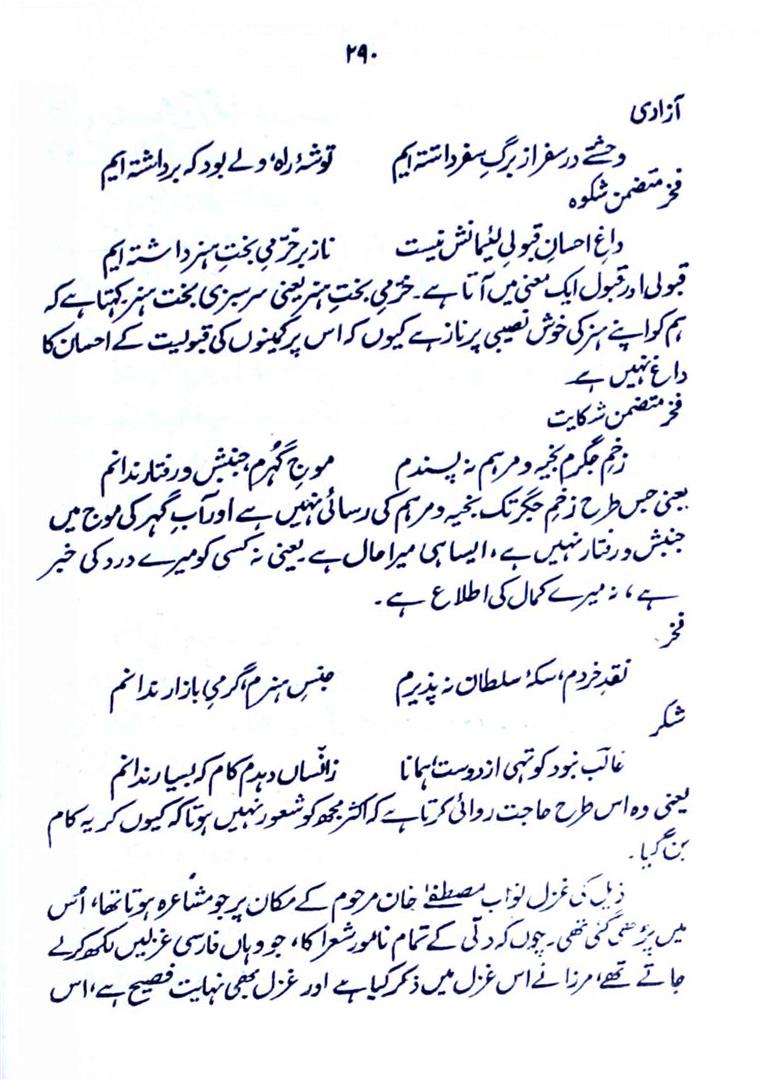 ۲۹۰
آزادی
وحشتے در سفر از برگِ سفر داشتہ ایم توشۂ راہ، دلے بود کہ برداشتہ ایم
فخر متضمن شکوہ
داغِ احسانِ قبولیِ لئیمانش نیست ناز بر خرّمیِ بختِ ہنر داشتہ ایم
قبولی اور قبول ایک معنی میں آتا ہے۔ خرّمیِ بختِ ہنر یعنی سرسبزی بخت ہنر کہتا ہے کہ
ہم کو اپنے ہنر کی خوش نصیبی پر ناز ہے کیوں کہ اس پر کمینوں کی قبولیت کے احسان کا
داغ نہیں ہے۔
فخر متضمن شکایت
زخمِ جگرم بخیہ و مرہم نہ پسندم موجِ گہُرم، جنبش و رفتار ندانم
یعنی جس طرح زخمِ جگر تک بخیہ و مرہم کی رسائی نہیں ہے اور آبِ گہر کی موج میں
جنبش و رفتار نہیں ہے، ایسا ہی میرا حال ہے یعنی نہ کسی کو میرے درد کی خبر
ہے، نہ میرے کمال کی اطلاع ہے۔
فخر
نقدِ خردم، سکۂ سلطان نہ پذیرم جنسِ ہنرم، گرمیِ بازار ندانم
شکر
غالبؔ نبود کوتہی از دوست ہمانا زانساں دہدم کام کہ بسیار ندانم
یعنی وہ اس طرح حاجت روائی کرتا ہے کہ اکثر مجھ کو شعور نہیں ہوتا کہ کیوں کر یہ کام
بن گیا۔
ذیل کی غزل نواب مصطفےٰ خان مرحوم کے مکان پر جو مشاعرہ ہوتا تھا، اُس
میں پڑھی گئی تھی۔ چوں کہ دلّی کے تمام نامور شعرا کا، جو وہاں فارسی غزلیں لکھ کر لے
جاتے تھے، مرزا نے اس غزل میں ذکر کیا ہے اور غزل بھی نہایت فصیح ہے، اس